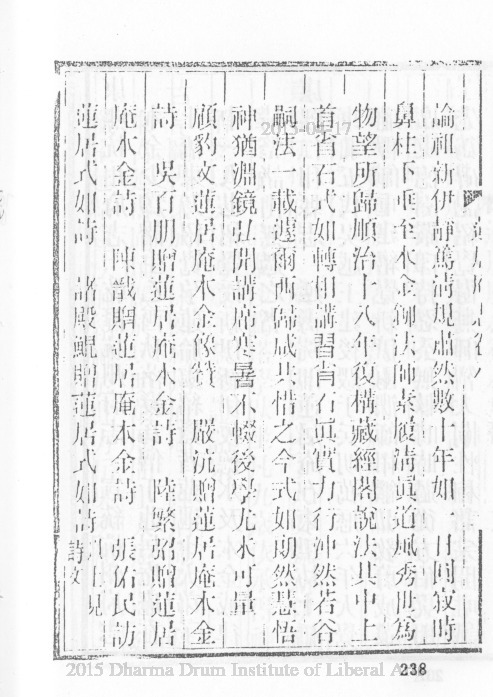 論祖新伊靜篤淸規肅然數十年如一日囘寂時
鼻柱下垂至木金御法師素履淸眞道風秀世爲
物望所歸順治十八年復構藏經閣說法其中上
首省石式如轉相講習省石眞實力行沖然若谷
嗣法一載遽爾西歸咸共惜之今式如朗然慧悟
神猶淵鏡弘開講席寒暑不輟後學尤未可量
顧豹文蓮居庵木金像贊 嚴沆贈蓮居庵木金
詩 吳百朋贈蓮居庵木金詩 陸繁弨贈蓮居
庵木金詩 陳戩贈蓮居庵木金詩 張佑民訪
蓮居式如詩 諸殿鯤贈蓮居式如詩 以上見
詩文
2015-04-17
2015 Dharma Drum Institute of Liberal
238